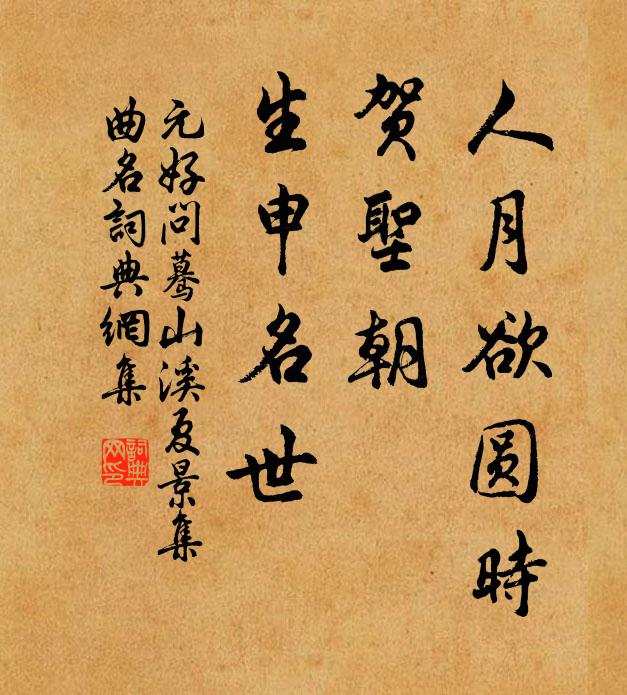 人月欲圆時
賀聖朝
生申名世
元好问驀山溪夏景集
曲名詞典網集
詞典网印